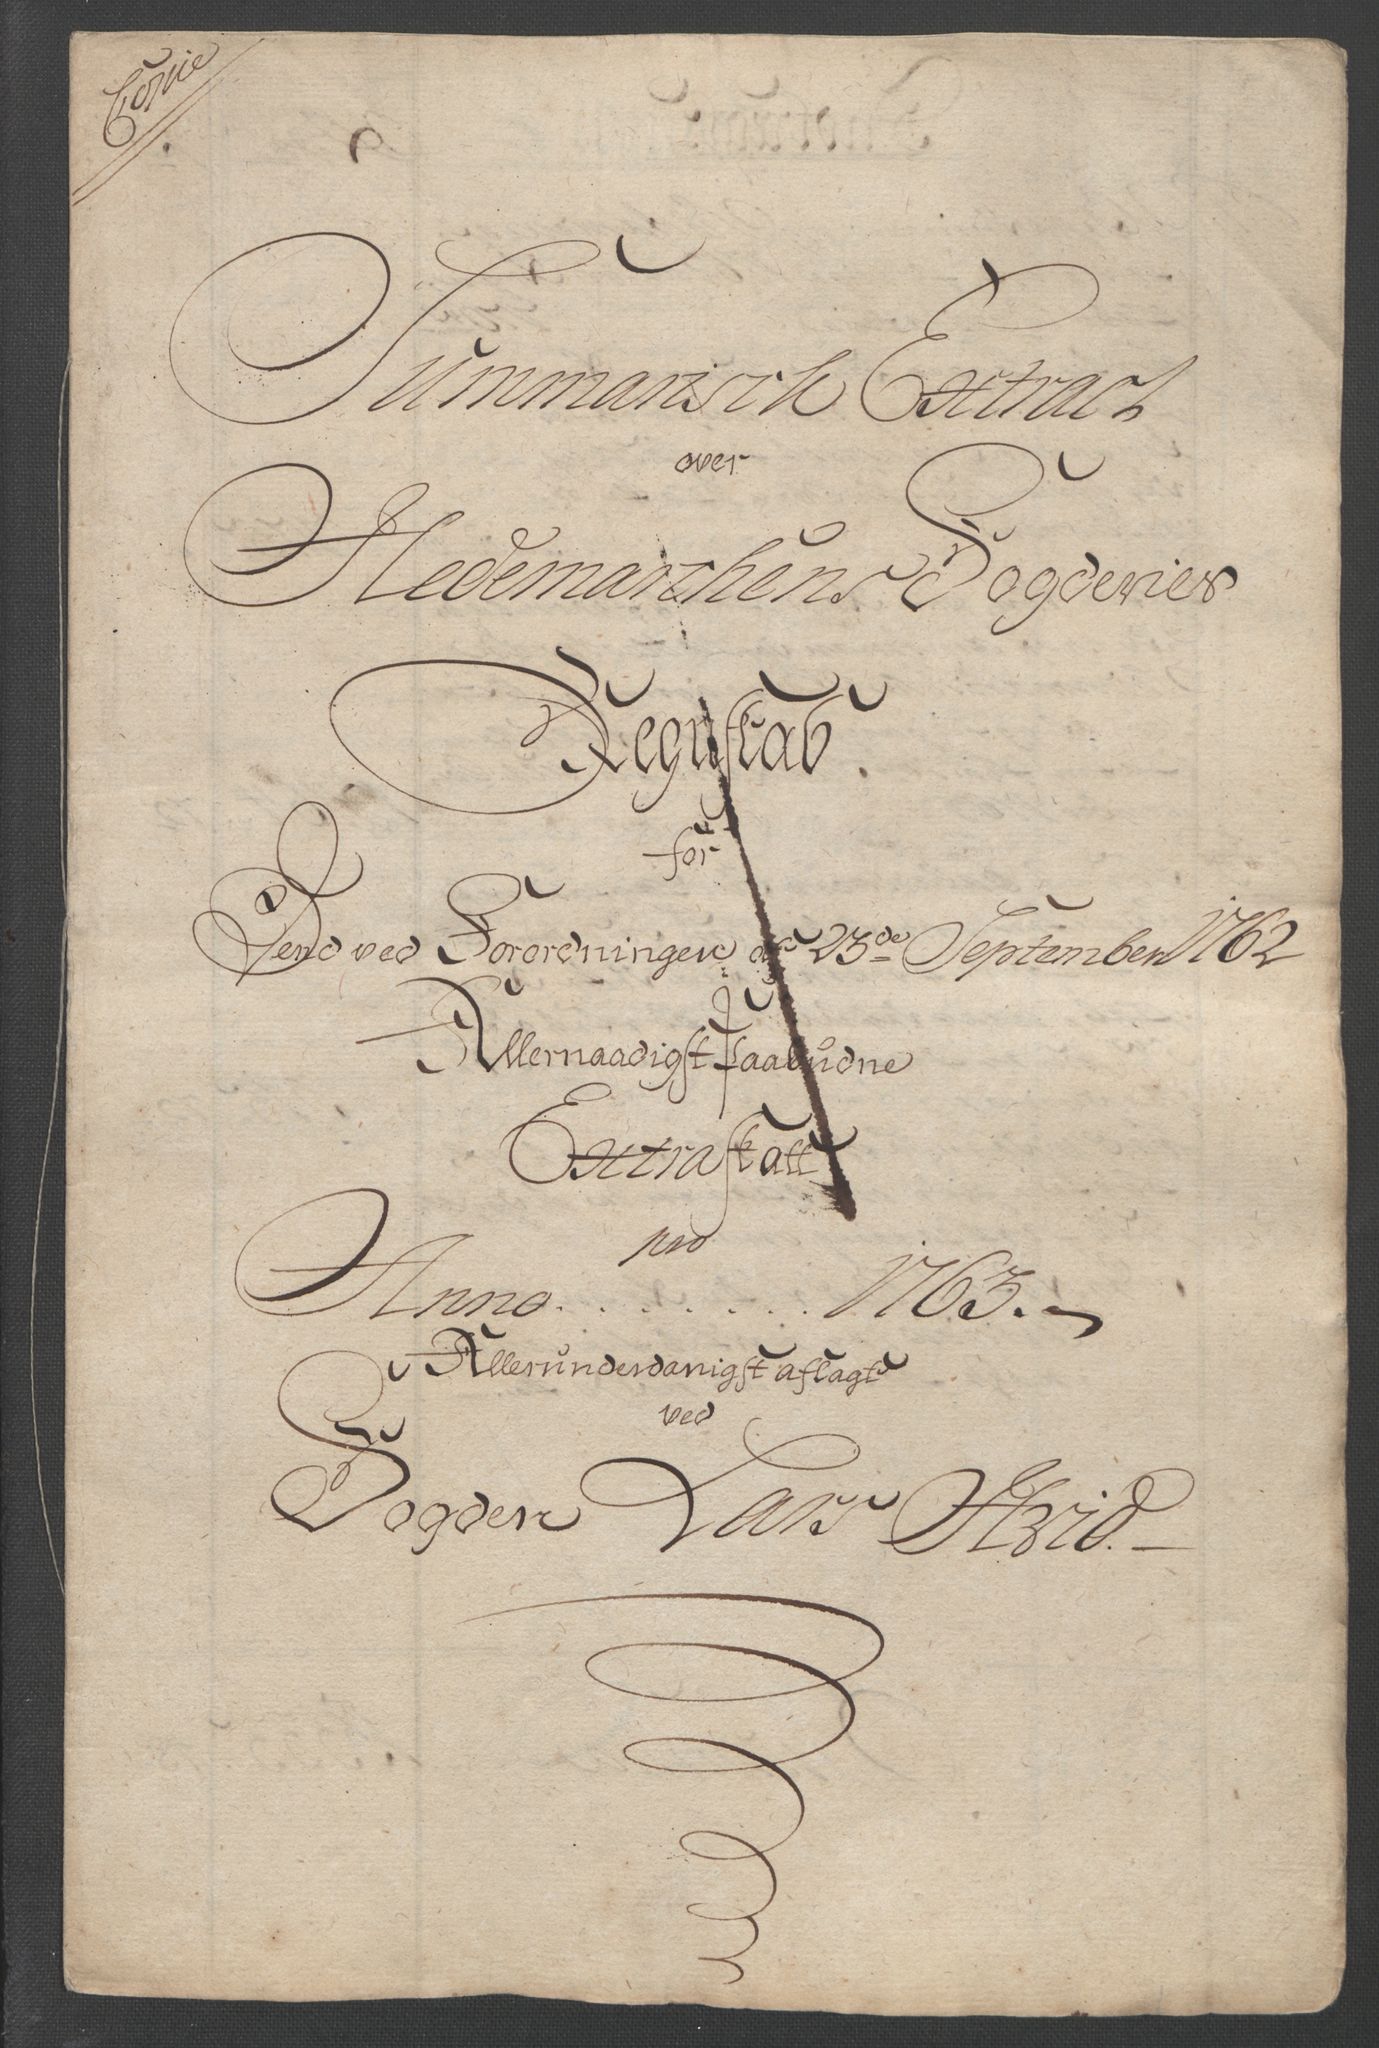 Copie
Summarisch Extract
over
Hedemarchens Fogderies
Regnskab
for
Dend ved Forordningen af 23de September 1762
Allernaadigst paabudne
Extraskatt
pro
Anno . . . . . . . . 1763.
Allerunderdanigst aflagt
ved
Fogden Lars